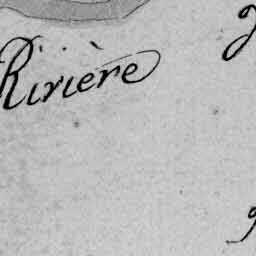 Rivière